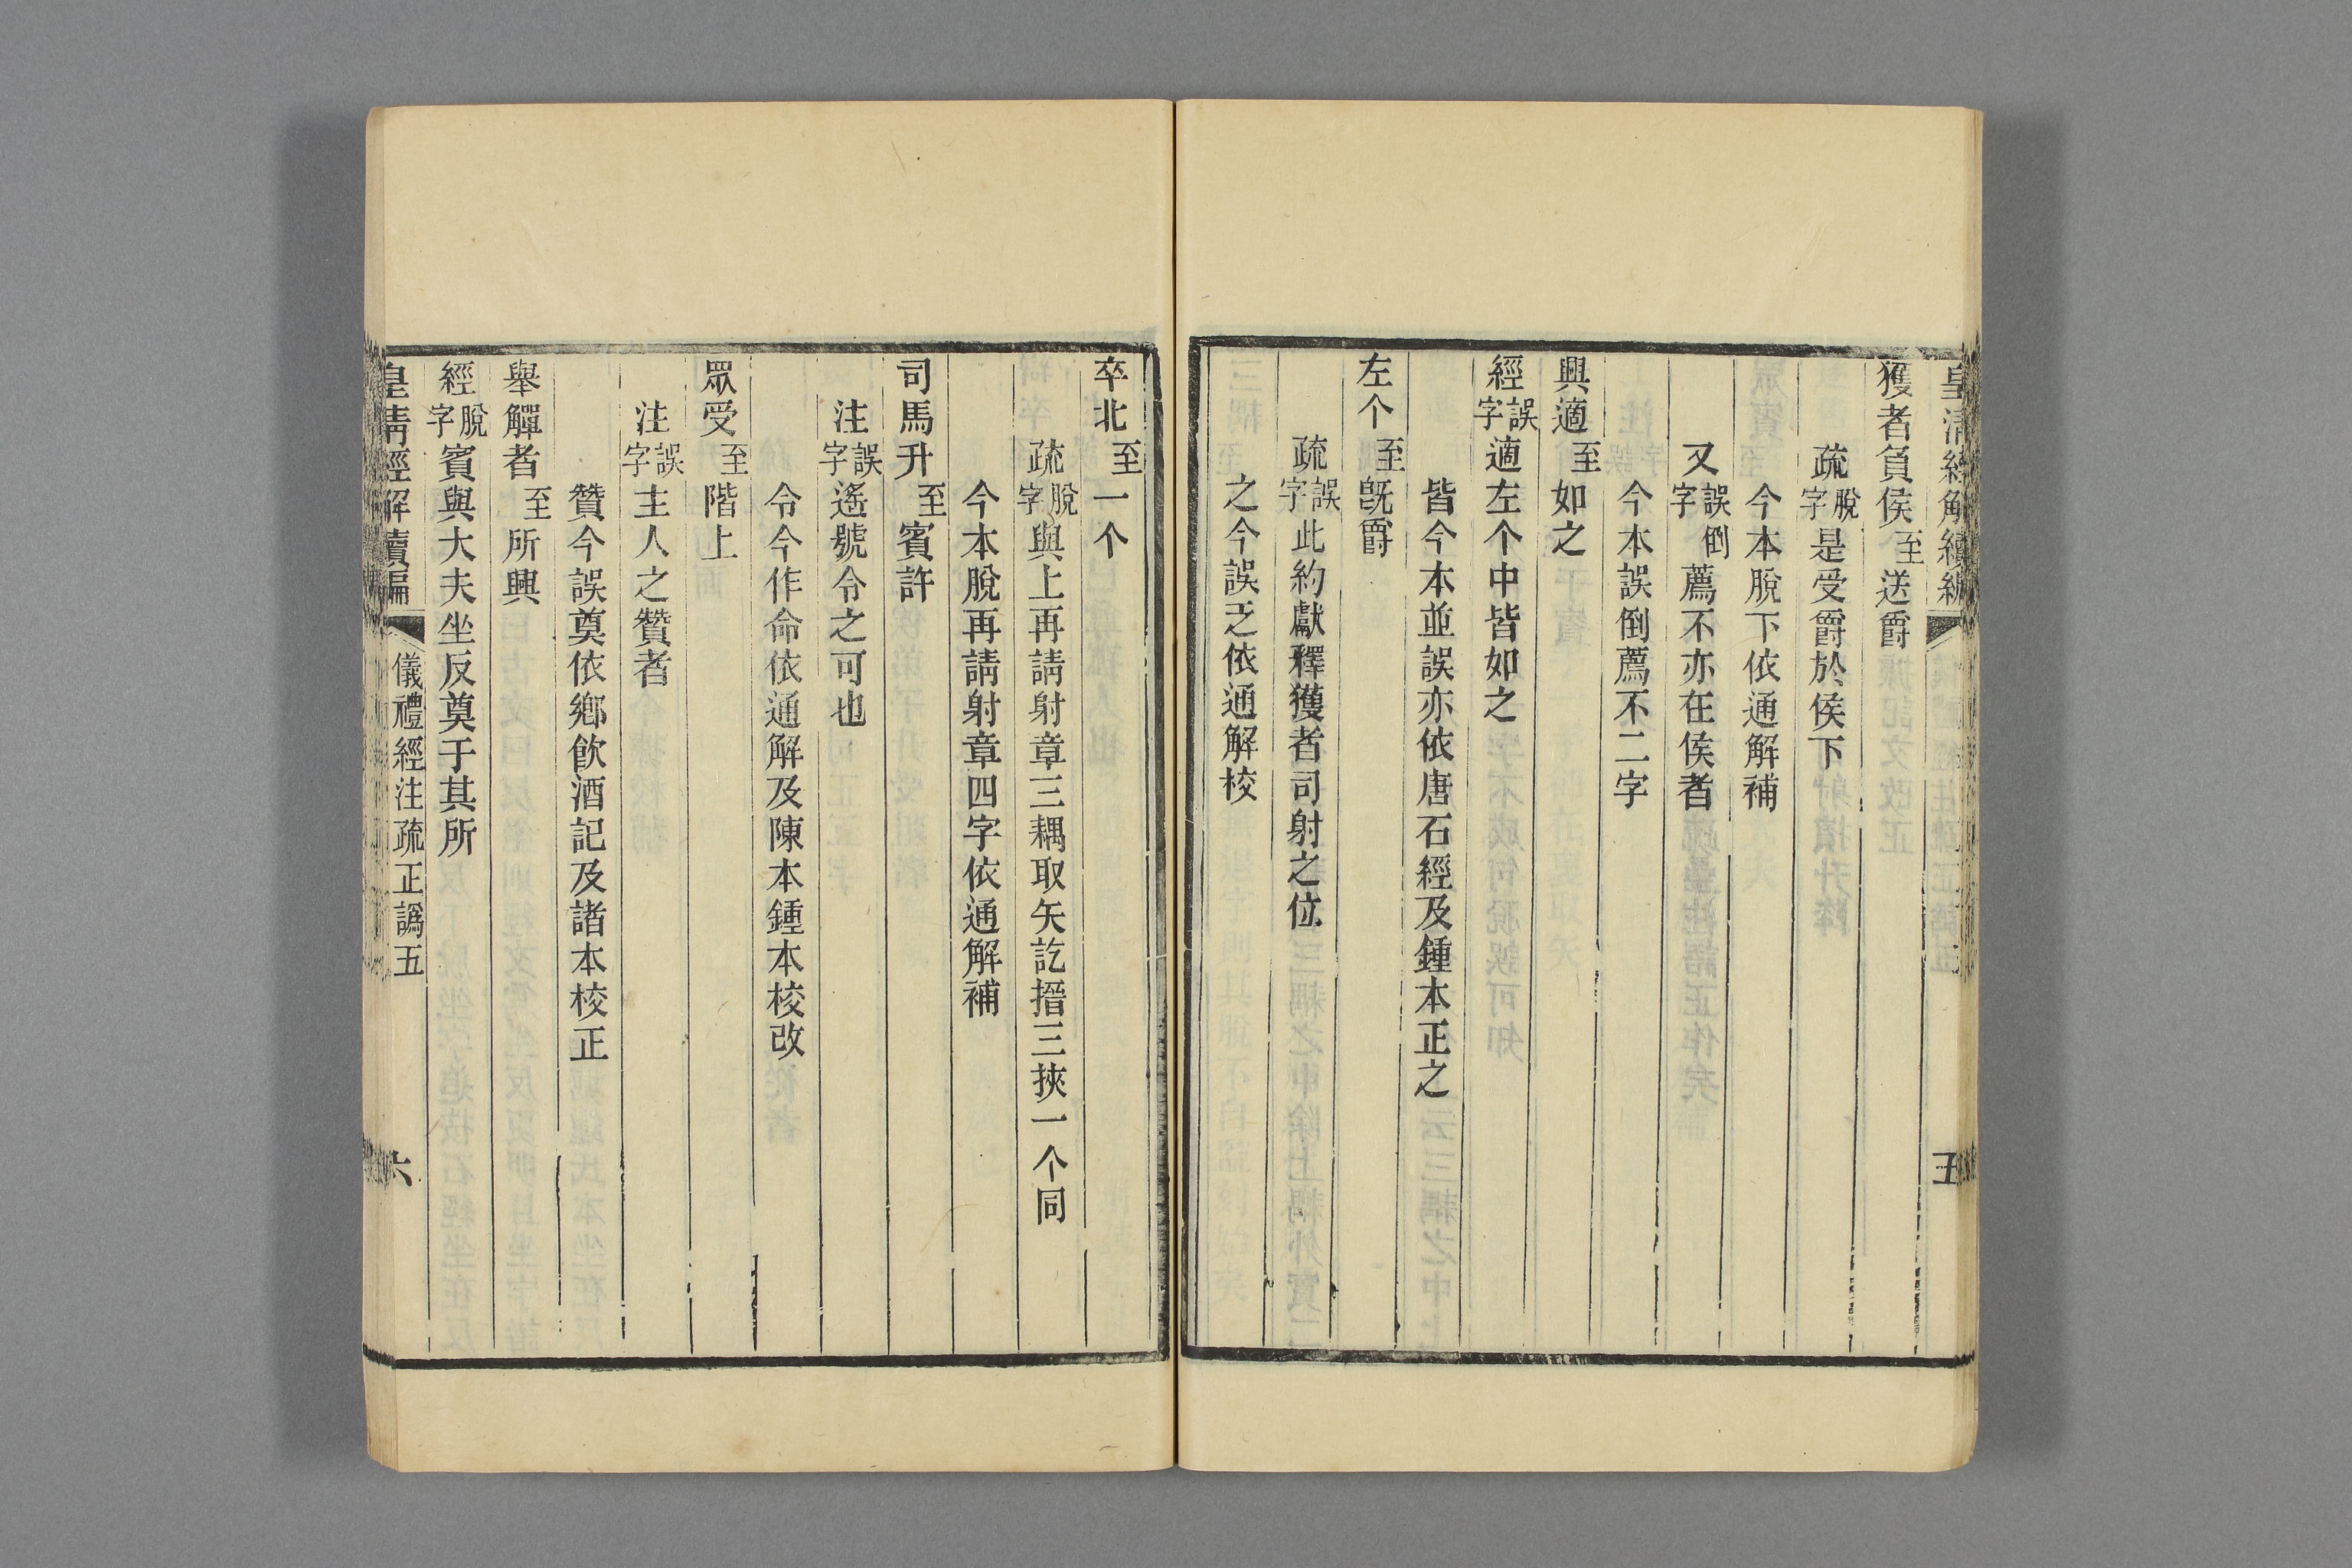 皇清經解續編
五
獲者負侯至送爵
疏脫字是受爵於侯下
今本脫下依通解補
又誤倒字薦不亦在侯者
今本誤倒薦不二字
興適至如之
經誤字適左个中皆如之
皆今本並誤亦依唐石經及鍾本正之
左个至旣爵
疏誤字此約獻釋獲者司射之位
之今誤乏依通解校
卒北至一个
疏脫字與上再請射章三耦取矢訖搢三挾一个同
今本脫再請射章四字依通解補
司馬升至賓許
注誤字遙號令之可也
令今作命依通解及陳本鍾本校改
眾受至階上
注誤字主人之贊者
贊今誤奠依鄉飮酒記及諸本校正
舉觶者至所興
經脫字賓與大夫坐反奠于其所
皇清經解續編
儀禮經注疏正譌五
六